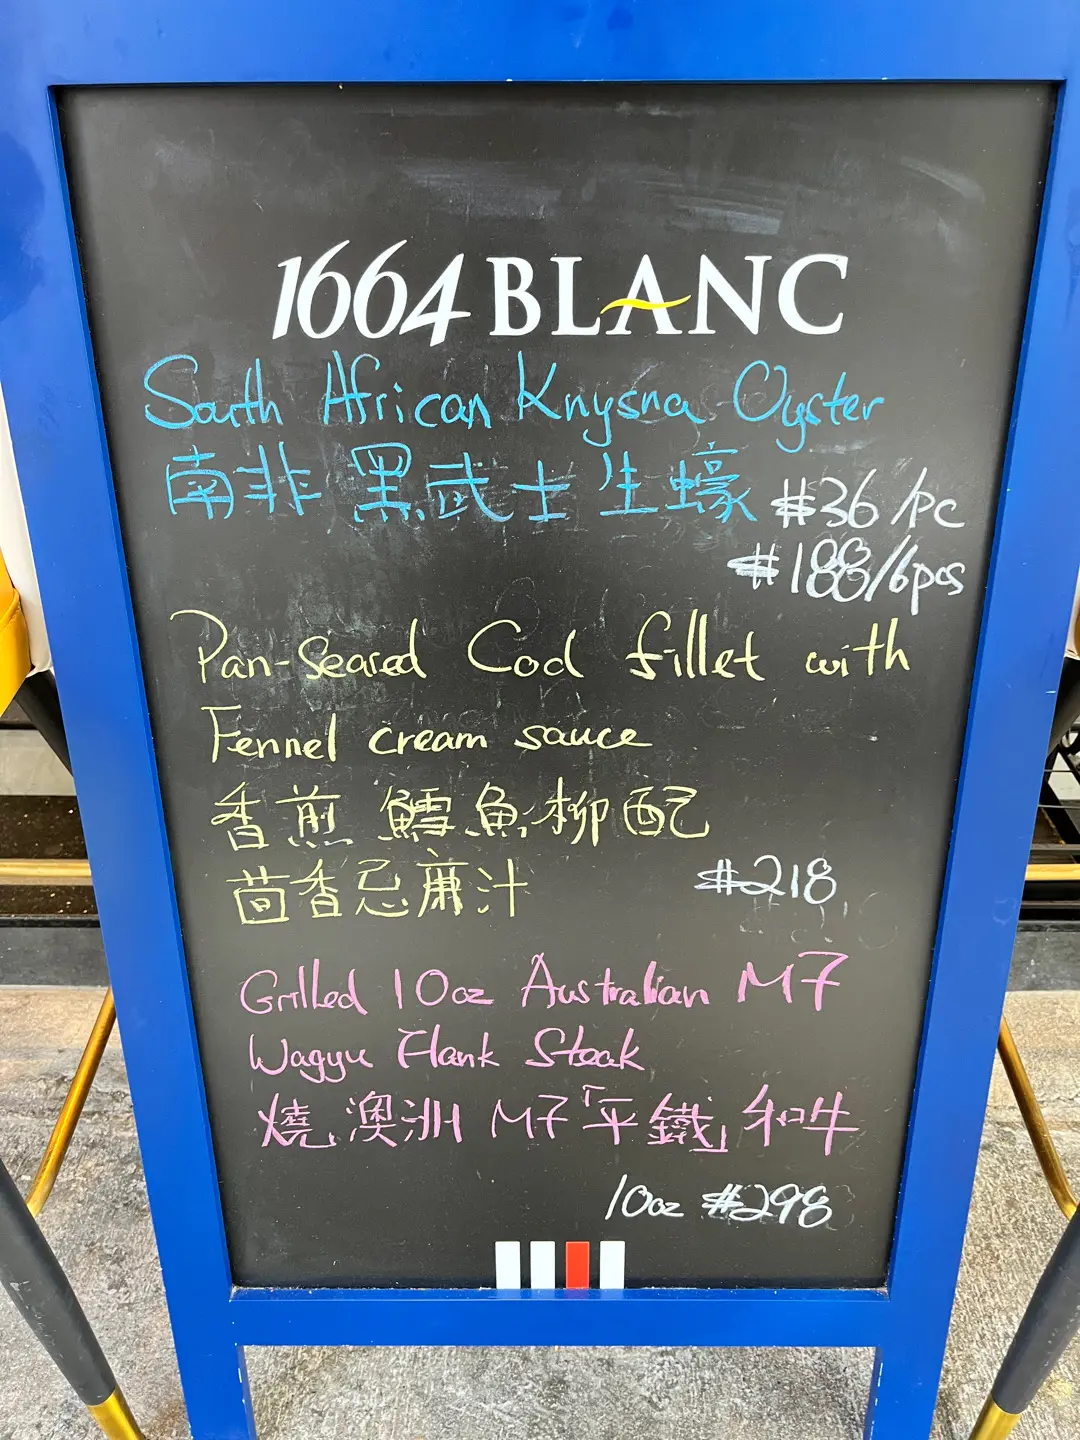 1664 BLANC
South African Knysna Oyster
南非 黑武士生蠔 #36/pc
#188/6pcs
Pan-Seared Cod fillet with
Fennel cream sauce
香煎鱈魚柳配
茴香忌廉汁 #218
Grilled 10oz Australian M7
Wagyu Flank Steak
燒澳洲 M7「平鐵」和牛
10oz #298